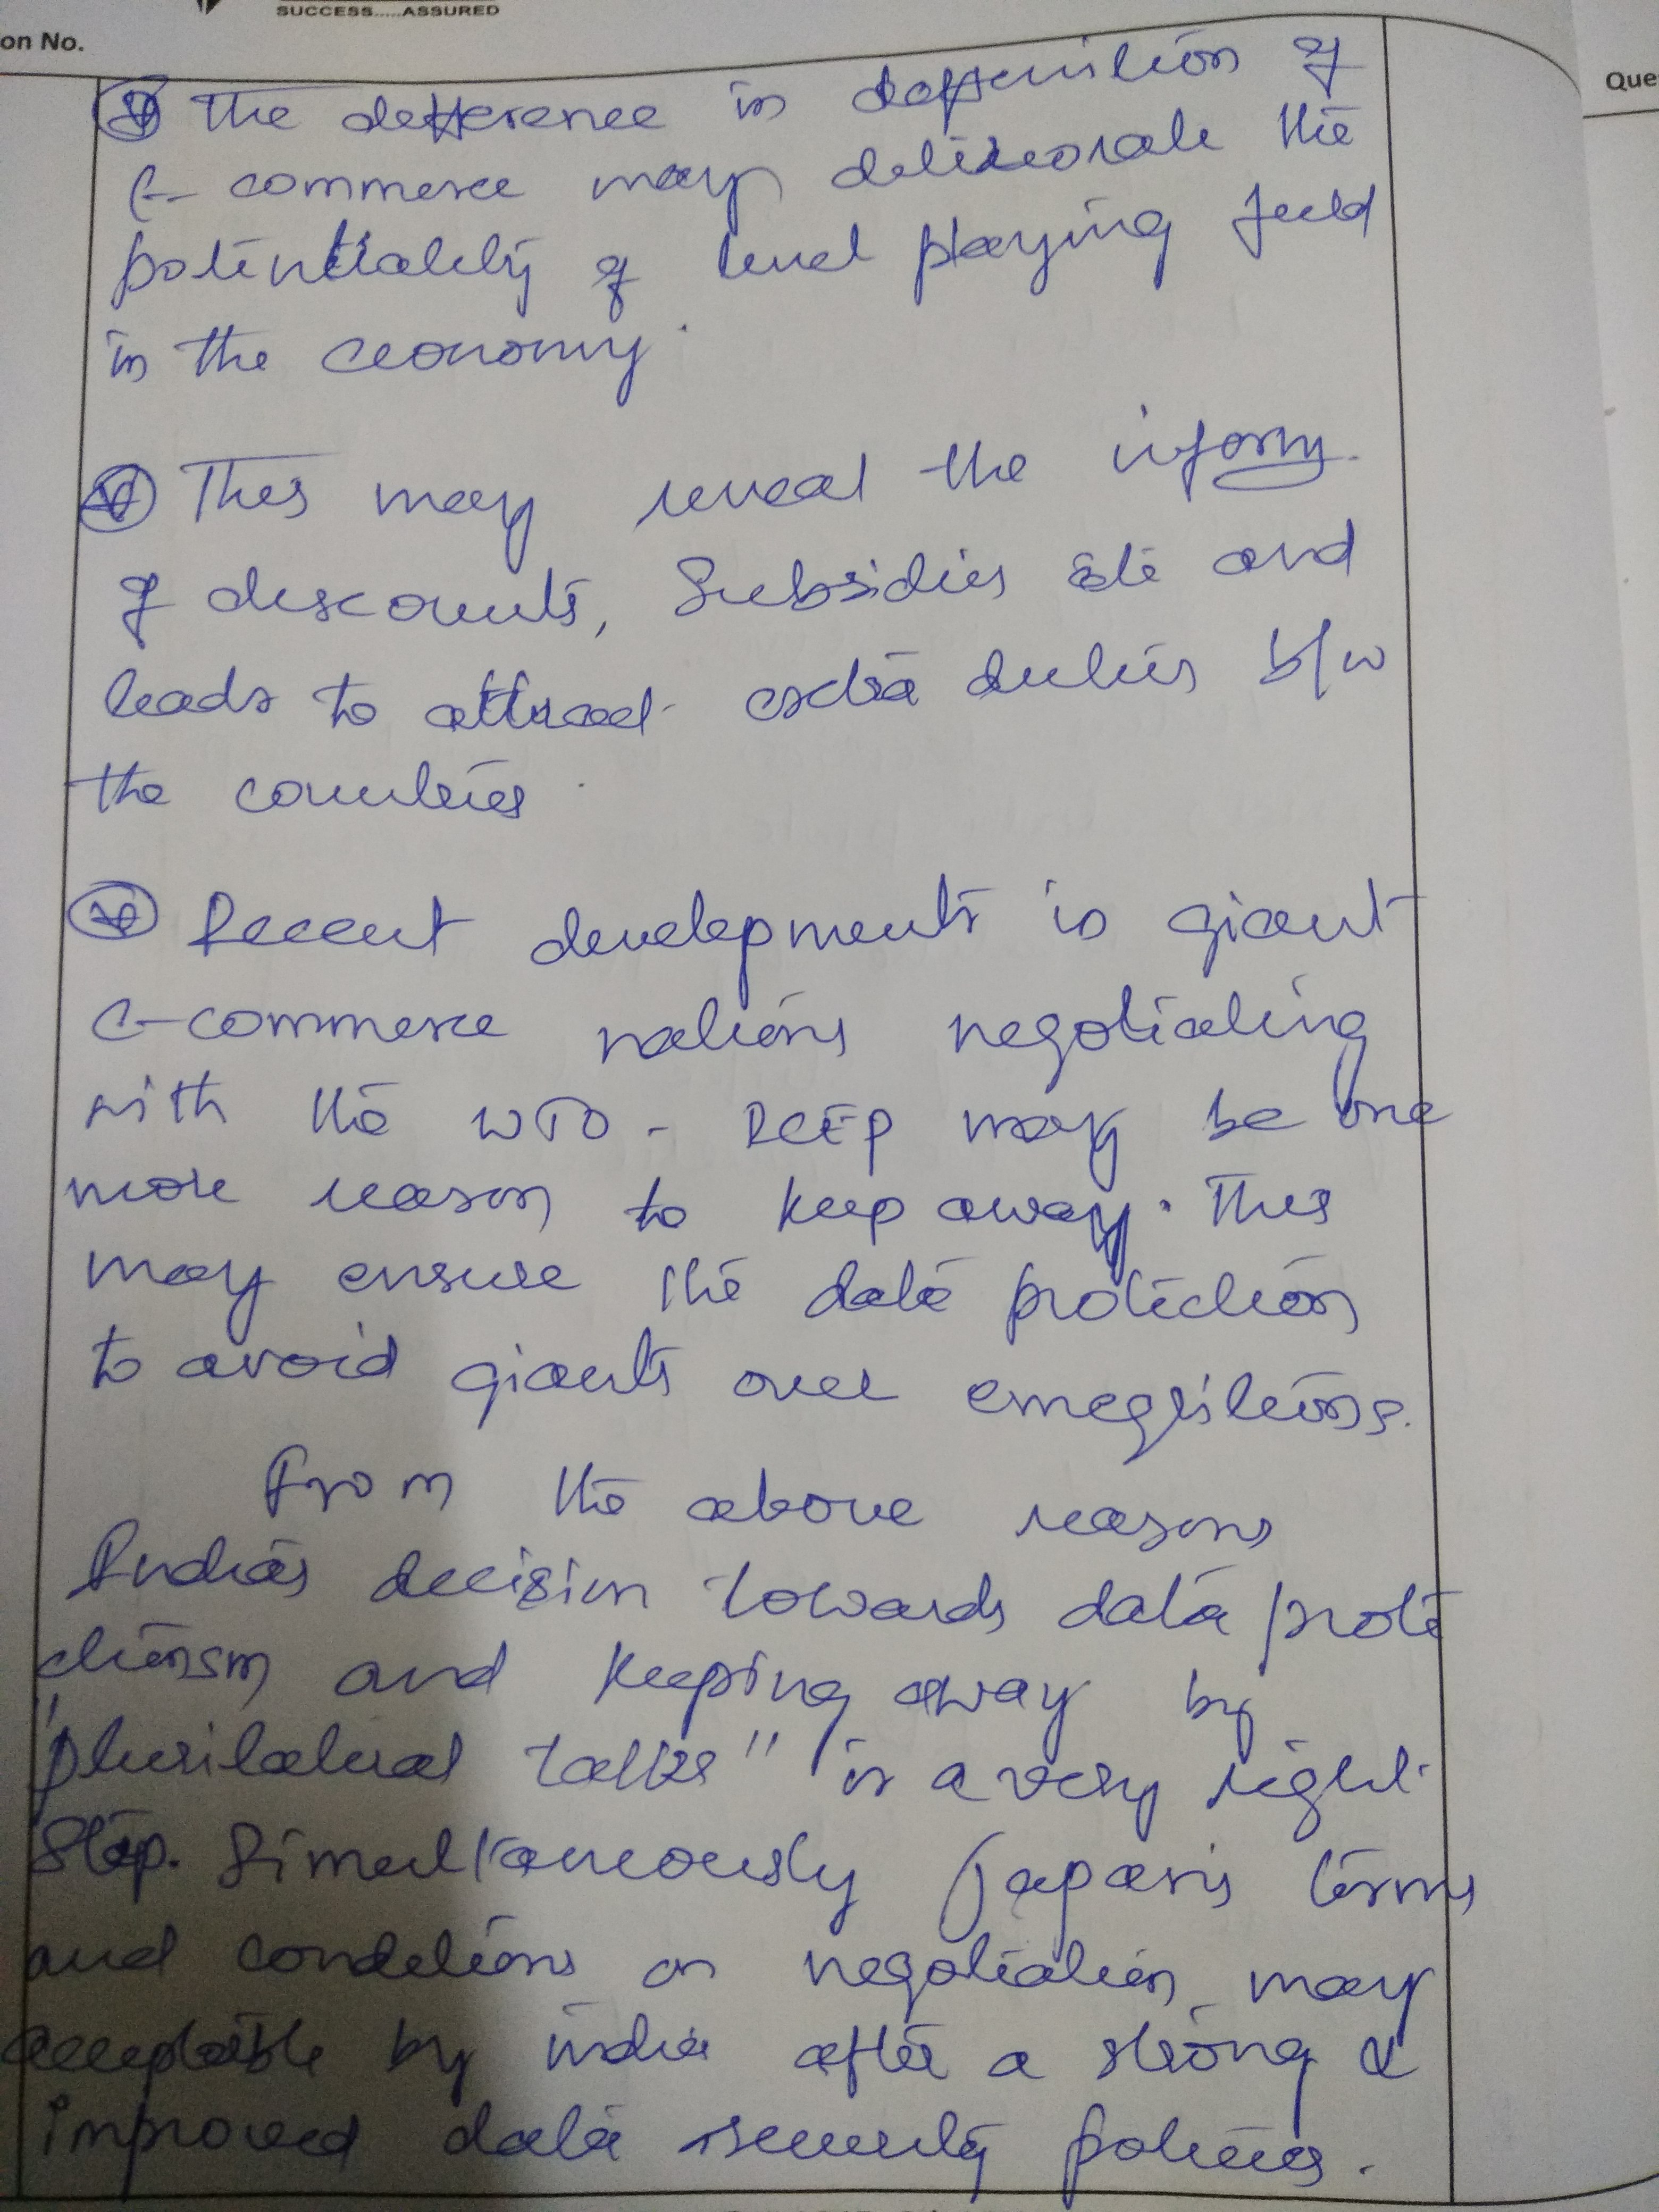 SUCCESS.....ASSURED
on No.
Que
The difference in deffenition of
E-commerce may deteriorate the
potentiality of level playing field
in the economy.
This may reveal the inform
of discounts, Subsidies etc and
leads to attract extra duties b/w
the countries.
Recent developments is giant
e-commerce nations negotiating
with the WTO - RCEP may be one
more reason to keep away. This
may ensure the data protection
to avoid giants over
From the above reasons
India's decision towards data prote
ctionsm and keeping away by
"plurilateral talks" is a very right
Step. Simultaneously Japan's terms
and conditions on negotiation may
acceptable by india after a strong &
improved data security policies.